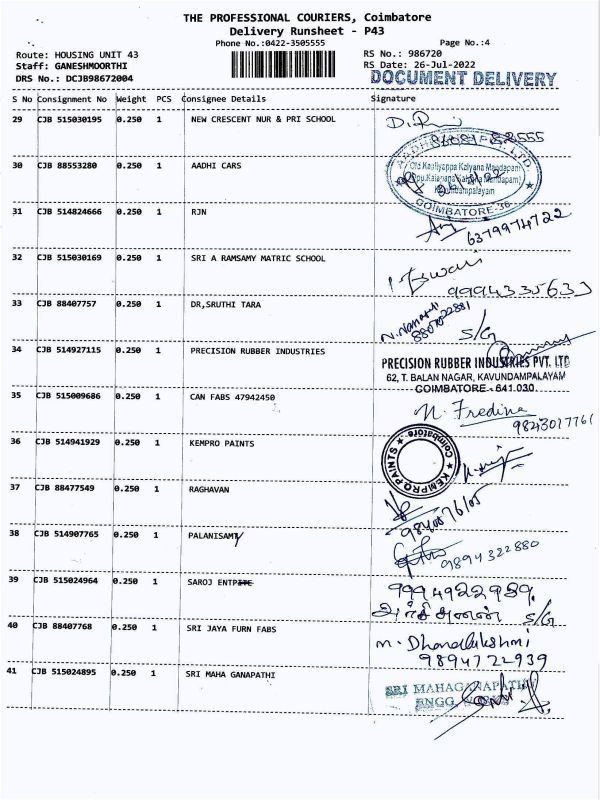 THE PROFESSIONAL COURIERS, Coimbatore
Delivery Runsheet - P43
Phone No.:0422-3505555
Page No.:4
Route: HOUSING UNIT 43
RS No.: 986720
Staff: GANESHMOORTHI
RS Date: 26-Jul-2022
DRS No.: DCJB98672004
DOCUMENT DELIVERY
S No Consignment No Weight PCS Consignee Details Signature
29 CJB 515030195 0.250 1 NEW CRESCENT NUR & PRI SCHOOL
30 CJB 88553280 0.250 1 AADHI CARS
COIMBATORE-36
31 CJB 514824666 0.250 1 RJN
6379974722
32 CJB 515030169 0.250 1 SRI A RAMSAMY MATRIC SCHOOL
9994335633
33 CJB 88407757 0.250 1 DR,SRUTHI TARA
S/G
34 CJB 514927115 0.250 1 PRECISION RUBBER INDUSTRIES
PRECISION RUBBER INDUSTRIES PVT. LTD
62, T. BALAN NAGAR, KAVUNDAMPALAYAM
COIMBATORE - 641 030.
35 CJB 515009686 0.250 1 CAN FABS 47942450
N. Fredina
9843017761
36 CJB 514941929 0.250 1 KEMPRO PAINTS
KEMPRO PAINTS
Coimbatore
37 CJB 88477549 0.250 1 RAGHAVAN
38 CJB 514907765 0.250 1 PALANISAMY
9894322880
39 CJB 515024964 0.250 1 SAROJ ENTPITE
9994922989.
S/G
40 CJB 88407768 0.250 1 SRI JAYA FURN FABS
M. Dhanalakshmi
9894722939
41 CJB 515024895 0.250 1 SRI MAHA GANAPATHI
SRI MAHAGANAPATHI
ENGG.